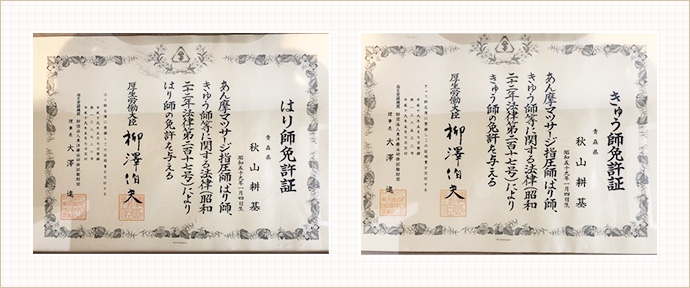 はり師免許証
青森県
秋山耕基
昭和五十九年一月四日生
あん摩マツサージ指圧師、はり師、
きゆう師等に関する法律(昭和
二十二年法律第二百十七号)により
はり師の免許を与える
厚生労働大臣 柳澤伯夫
理事長 大澤 進
きゆう師免許証
青森県
秋山耕基
昭和五十九年一月四日生
あん摩マツサージ指圧師、はり師、
きゆう師等に関する法律(昭和
二十二年法律第二百十七号)により
きゆう師の免許を与える
厚生労働大臣 柳澤伯夫
理事長 大澤 進